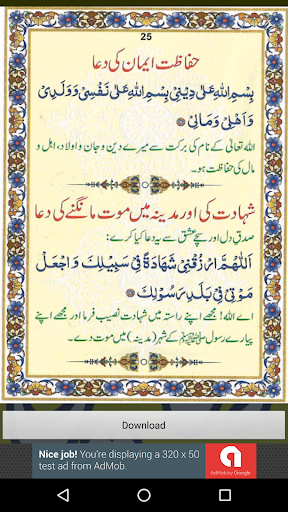 25
حفاظت ایمان کی دعا
بِسْمِ اللهِ عَلٰى دِيْنِيْ بِسْمِ اللهِ عَلٰى نَفْسِيْ وَوَلَدِيْ
وَاَهْلِيْ وَمَالِيْ
اللہ تعالی کے نام کی برکت سے میرے دین و جان و اولاد، اہل و
مال کی حفاظت ہو۔
شہادت کی اور مدینہ میں موت مانگنے کی دعا
صدق دل اور سچے عشق سے یہ دعا کیا کرے:
اَللّٰهُمَّ ارْزُقْنِيْ شَهَادَةً فِيْ سَبِيْلِكَ وَاجْعَلْ
مَوْتِيْ فِيْ بَلَدِ رَسُوْلِكَ
اے اللہ! مجھے اپنے راستہ میں شہادت نصیب فرما اور مجھے اپنے
پیارے رسول ﷺ کے شہر (مدینہ) میں موت دے۔
Download
Nice job! You're displaying a 320 x 50
test ad from AdMob.
AdMob by Google